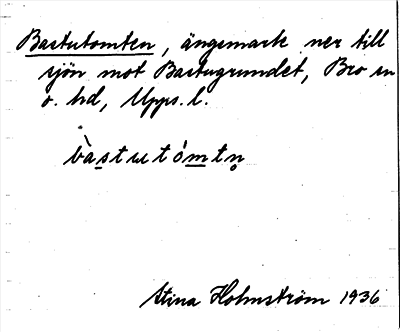 Bastutomten, ängsmark ner till
sjön mot Bastugrundet, Bro sn
o. hd, Upps. l.
bàstutómtn̥
Stina Holmström 1936